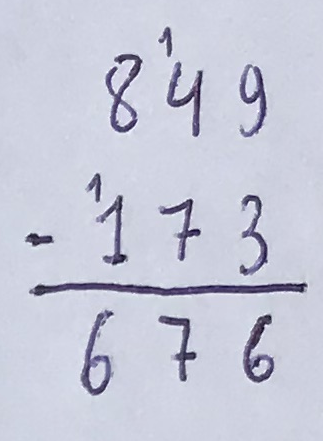 1
849
1
- 173
676